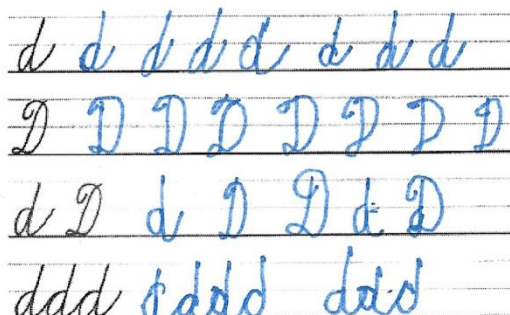 d d d d d d d d
D D D D D D D D
d D d D D d D
ddd dddd ddd